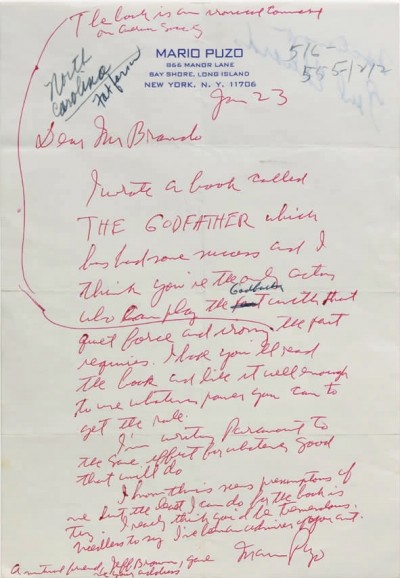 The book is an ironical comment
on American Society
North
Carolina
Fat farm
MARIO PUZO
866 MANOR LANE
BAY SHORE, LONG ISLAND
NEW YORK, N. Y. 11706
516-
Jan 23
Dear Mr Brando
I wrote a book called
THE GODFATHER which
has had some success and I
think you're the only actor
Godfather
who can play the part with that
quiet force and irony the part
requires. I hope you'll read
the book and like it well enough
to use whatever power you can to
get the role.
I'm writing Paramount to
the same effect for whatever good
that will do
I know this was presumptuous of
me but the best I can do for the book is
try. I really think you'd be tremendous.
Needless to say I've been an admirer of your art.
Mario Puzo
A mutual friend, Jeff Brown, gave
me your address